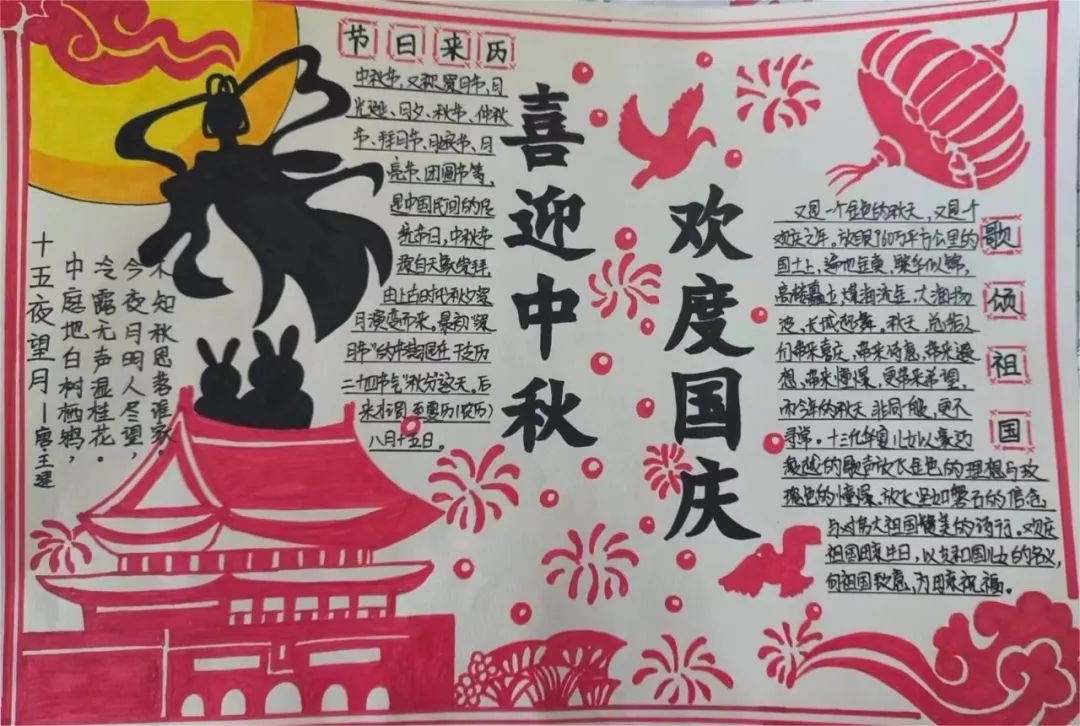 节日来历
中秋节，又称祭月节、月
光诞、月夕、秋节、仲秋
节、拜月节、月娘节、月
亮节、团圆节等，
是中国民间的传
统节日，中秋节
源自天象崇拜，
由上古时代秋夕祭
月演变而来。最初“祭
月节”的节期是在干支历
二十四节气“秋分”这天，后
来才调至夏历（农历）
八月十五日。
十五夜望月—唐.王建
中庭地白树栖鸦，
冷露无声湿桂花。
今夜月明人尽望，
不知秋思落谁家。
喜迎中秋
欢度国庆
歌颂祖国
又是一个金色的秋天，又是一个
欢庆之年。放眼960万平方公里的
国土上，遍地金黄，繁华似锦，
高楼矗立 煤海流金，大海扬
波，长城起舞。秋天，总给人
们带来喜庆，带来诗意，带来遐
想，带来憧憬，更带来希望，
而今年的秋天 非同一般，更不
寻常。十三亿华夏儿女以豪迈
激越的歌声放飞金色的理想与玫
瑰色的憧憬，放飞坚如磐石的信念
与对伟大祖国赞美的诗行。欢庆
祖国母亲生日，以共和国儿女的名义，
向祖国致意，为母亲祝福。